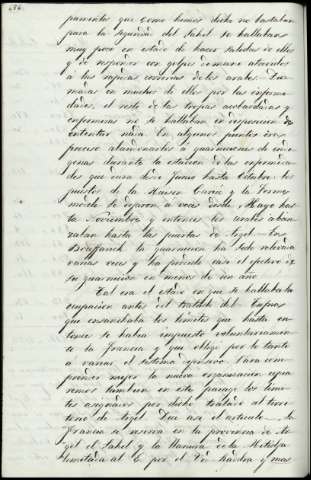 pamentos que como hemos dicho no bastaban
para la seguridad del Sahel se hallaban
muy poco en estado de hacer salidas de ellos
y de responder con golpes comunes atrevidos
á las rapidas correrias de los arabes. Diez-
madas en muchos de ellos por las enferme-
dades, el resto de las tropas acobardadas y
enfermizas no se hallaban en disposicion de
intentar nada. En algunos puntos era
preciso abandonarlos á guarniciones de indi-
genas durante la estacion de las enfermeda-
des que dura desde Junio hasta Octubre; los
puestos de la Maison Carrée y la Ferme
modele se dejaron á veces desde Mayo has-
ta Noviembre y entonces los arabes alcan-
zaban hasta las puertas de Argel. En
Bouffarick la guarnicion ha sido relevada
varias veces y ha perdido casi el efectivo de
su guarnicion en menos de un año.
Tal era el estado en que se hallaba la
ocupacion antes del tratado del Tafna
que ensanchaba los limites que hasta en-
tonces se habia impuesto voluntariamen-
te la Francia y que obligó por lo tanto
á variar el sistema ofensivo. Para com-
prender mejor la nueva organizacion copia-
remos tambien en este parage los limi-
tes asignados por dicho tratado al terri-
torio de Argel. Dice asi el articulo: la
Francia se reserva en la provincia de Ar-
gel el Sahel y la llanura de la Mitidja
limitada al E. por el Oued Kaddra y mas